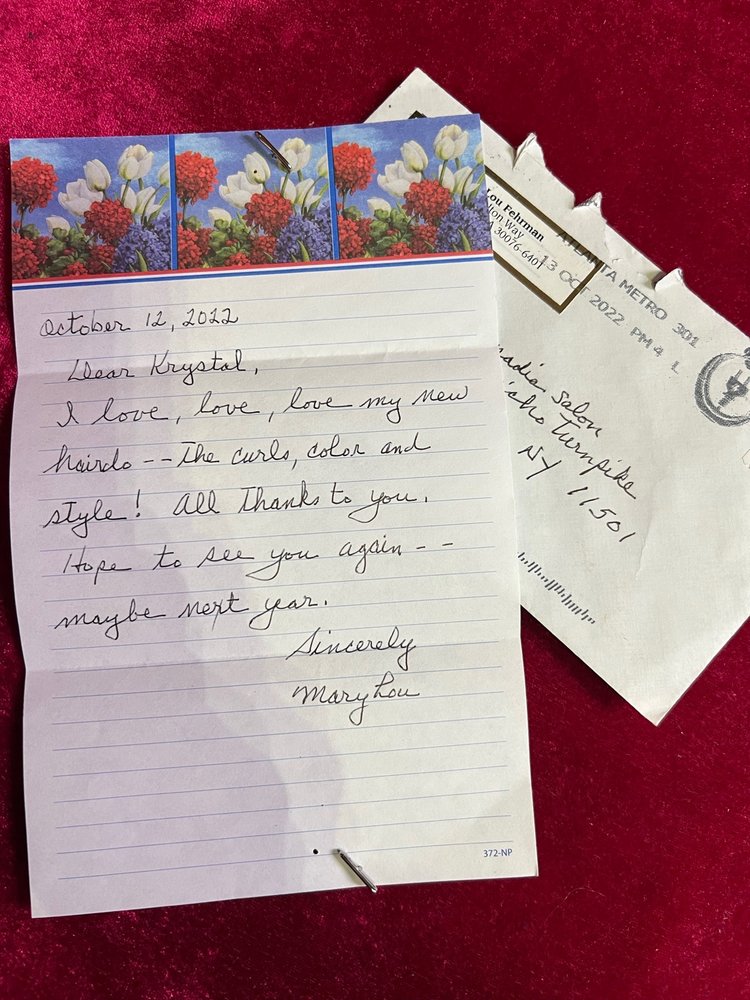 October 12, 2022
Dear Krystal,
I love, love, love my new
hairdo -- the curls, color and
style! All thanks to you.
Hope to see you again --
maybe next year.
Sincerely
Mary Lou
372-NP
Lou Fehrman
Way
30076-6401
ATLANTA METRO 301
13 OCT 2022 PM 4 L
Salon
Turnpike
NY 11501